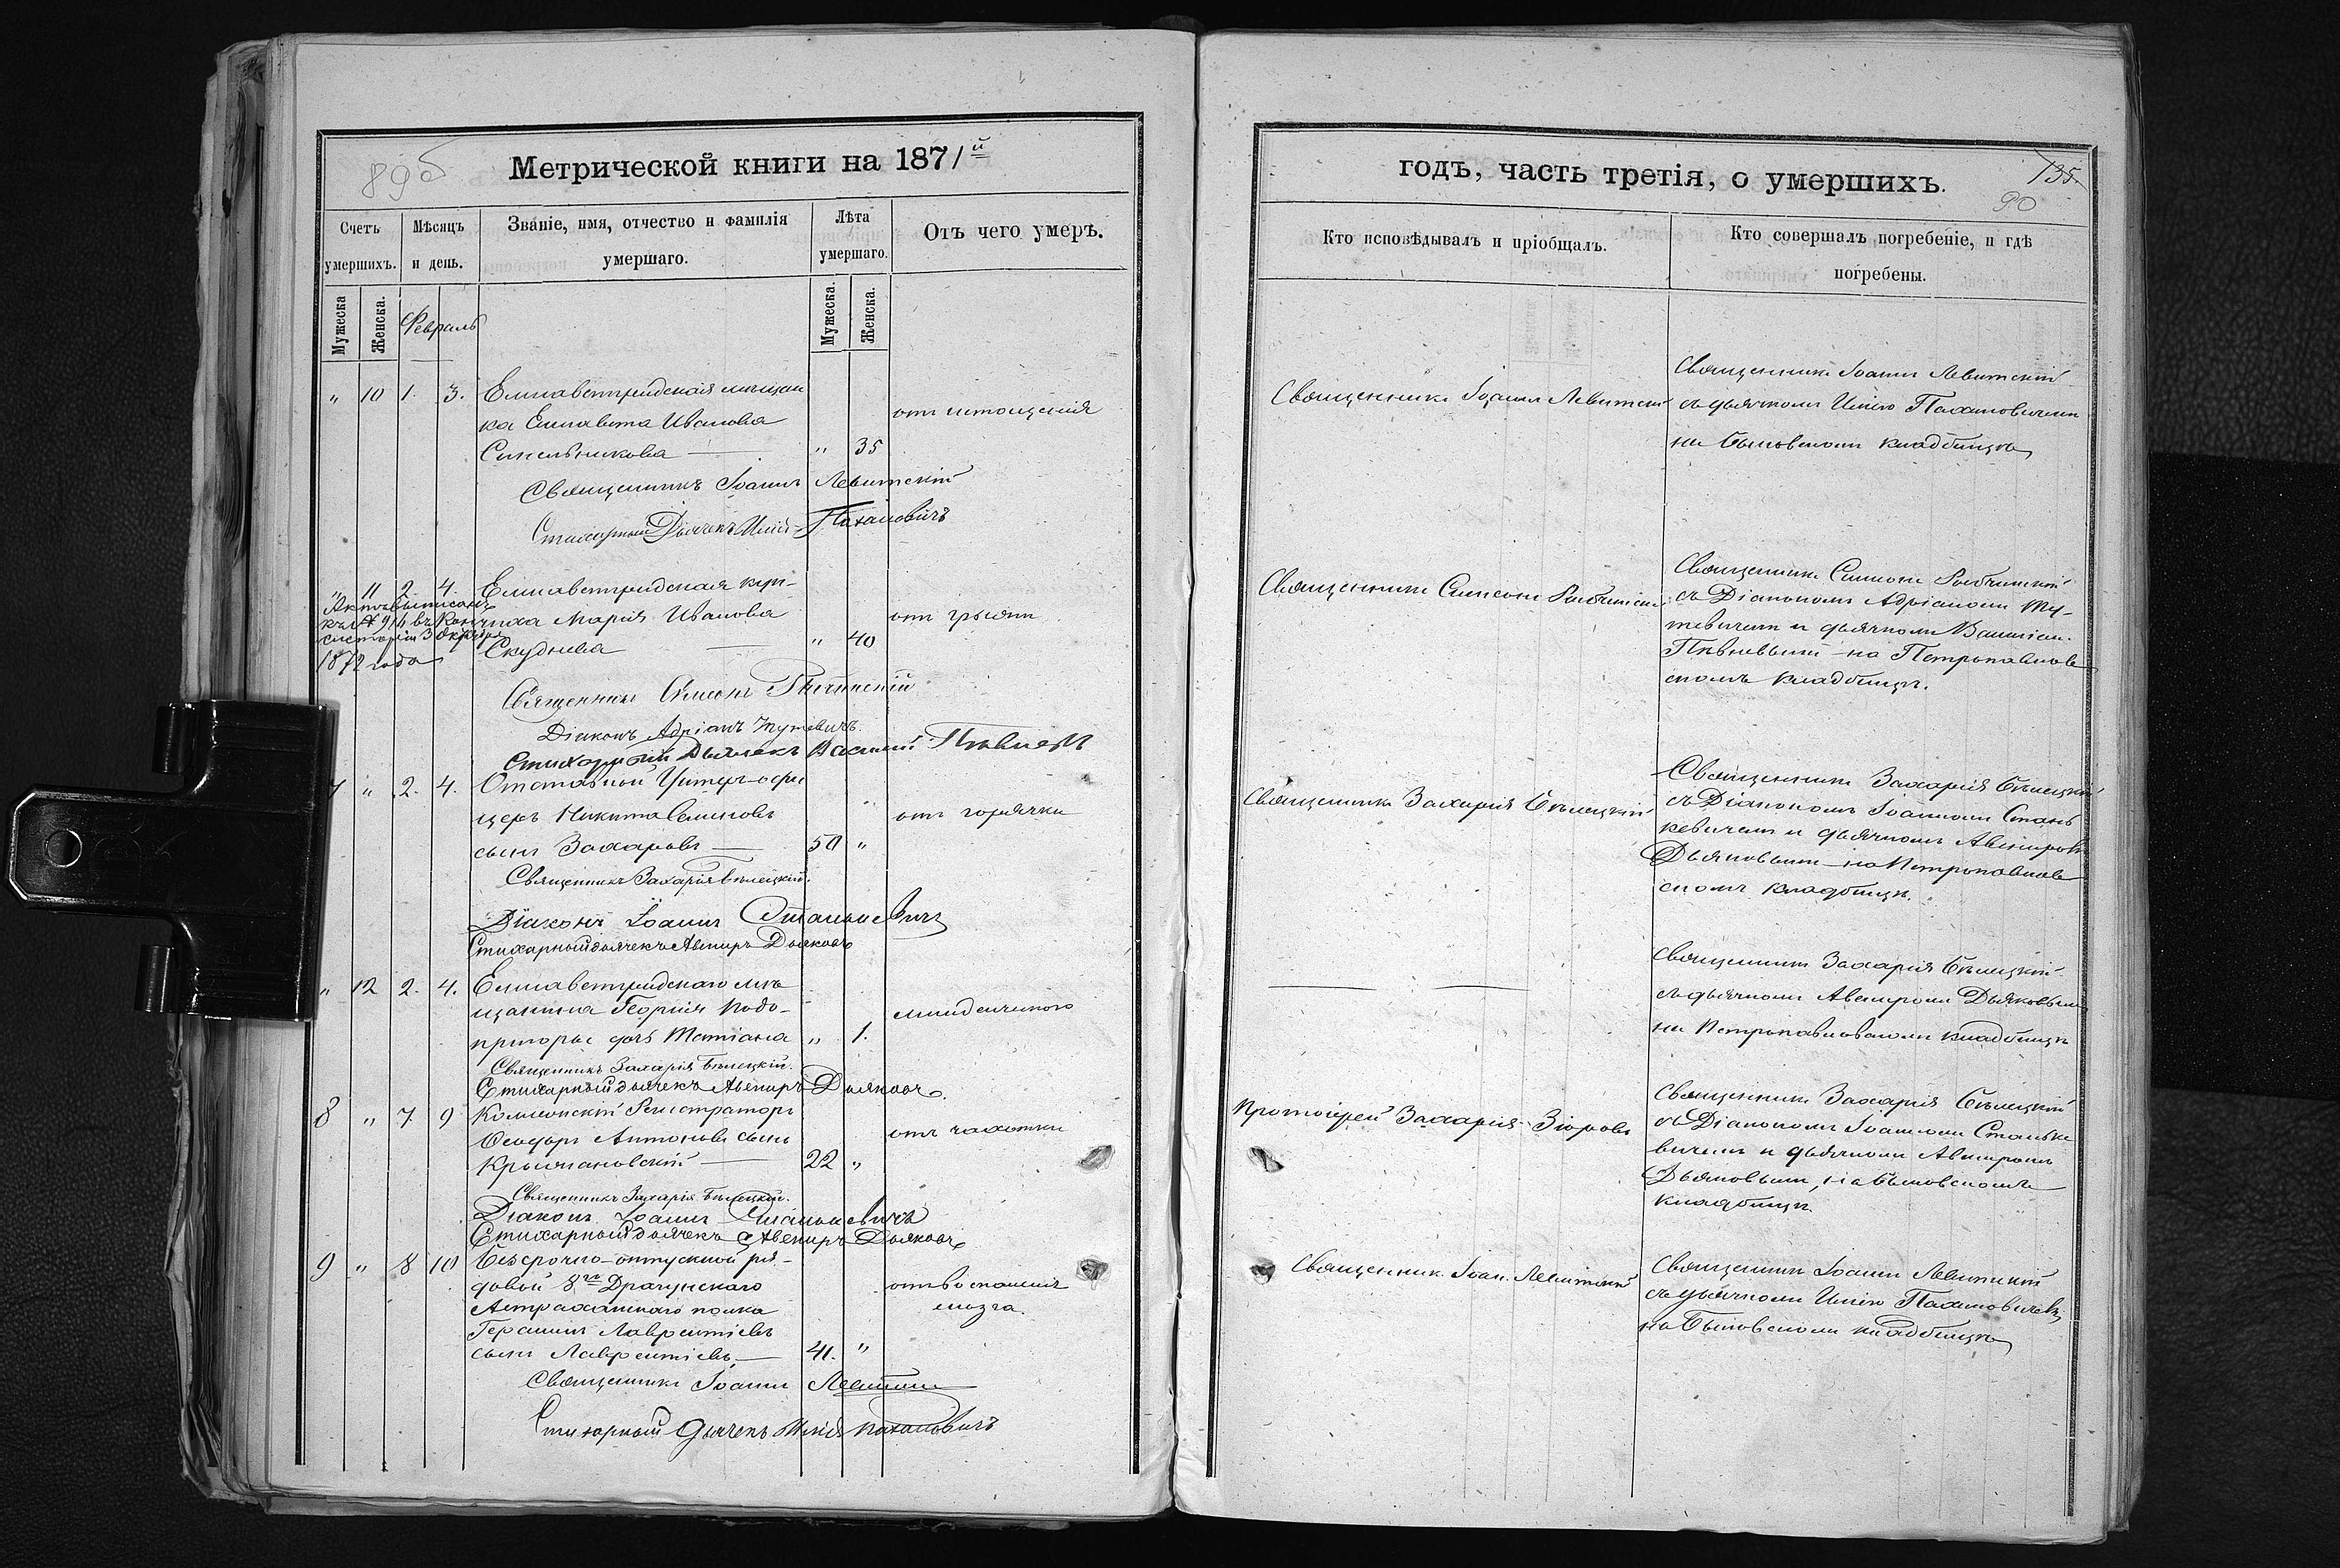 89об
Метрической книги на 1871й
Счетъ умершихъ.
Мѣсяцъ и день.
Званіе, имя, отчество и фамилія умершаго.
Лѣта умершаго.
Отъ чего умеръ.
Мужеска
Женска.
Февраль
Мужеска.
Женска.
" 10 1. 3. Елисаветградская мѣщан
ка Елисавета Иванова
отъ истощенія
Синельникова — " 35
Священникъ Іоаннъ Левитскій
Стихарный Дьячекъ Илій Пахановичъ
" 11 2. 4. Елисаветградская куп-
чиха Марія Иванова
отъ грыжи
Скуднева — " 40
Актъ выписанъ
къ № 914 въ Кон
систорію 3 Октября
1872 года
Священникъ Симеонъ
Діаконъ Адріанъ Тутевичъ.
Стихарный Дьячекъ Василій Пѣвневъ
7 " 2. 4. Отставной Унтеръ-офи
церъ Никита Семеновъ
отъ горячки
сынъ Захаровъ — 50 "
Священникъ Захарія Бѣлецкій.
Діаконъ Іоаннъ Станькевичъ
Стихарный дьячекъ Авениръ Дьяковъ
" 12 2. 4. Елисаветградскаго мѣ
щанина Георгія Подо-
младенческаго
пригоры дочь Татіана " 1.
Священникъ Захарія Бѣлецкій.
Стихарный дьячекъ Авениръ Дьяковъ.
8 " 7. 9 Коллежскій Регистраторъ
Ѳеодоръ Антоновъ сынъ
отъ чахотки
22 "
Священникъ Захарія Бѣлецкій.
Діаконъ Іоаннъ Станькевичъ
Стихарный дьячекъ Авениръ Дьяковъ
9 " 8 10 Безсрочно-отпускной ря-
довой 8го Драгунскаго
отъ воспаленія
Астраханскаго полка
мозга.
Герасимъ Лаврентіевъ
сынъ Лаврентіевъ — 41. "
Священникъ Іоаннъ Левитскій
Стихарный Дьячекъ Илій Пахановичъ
годъ, часть третія, о умершихъ.
135.
90
Кто исповѣдывалъ и пріобщалъ.
Кто совершалъ погребеніе, и гдѣ погребены.
Священникъ Іоаннъ Левитскій
Священникъ Іоаннъ Левитскій
съ дьячкомъ Иліею Пахановичемъ
на Быковскомъ кладбищѣ
Священникъ Симеонъ
Священникъ Симеонъ
съ Діакономъ Адріаномъ Ту-
тевичемъ и дьячкомъ Василіем.
Пѣвневымъ на Петропавлов
скомъ кладбищѣ.
Священникъ Захарія Бѣлецкій
Священникъ Захарія Бѣлецкій
съ Діакономъ Іоанномъ Стань
кевичемъ и дьячкомъ Авениромъ
Дьяковымъ на Петропавлов
скомъ кладбищѣ.
Священникъ Захарія Бѣлецкій
съ дьячкомъ Авениромъ Дьяковымъ
на Петропавловскомъ кладбищѣ
Протоіерей Захарія
Священникъ Захарія Бѣлецкій
съ Діакономъ Іоанномъ Станьке
вичемъ и дьячкомъ Авениромъ
Дьяковымъ, на Быковскомъ
кладбищѣ.
Священник. Іоан. Левитскій
Священникъ Іоаннъ Левитскій
съ дьячкомъ Иліею Пахановичемъ
на Быковскомъ кладбищѣ